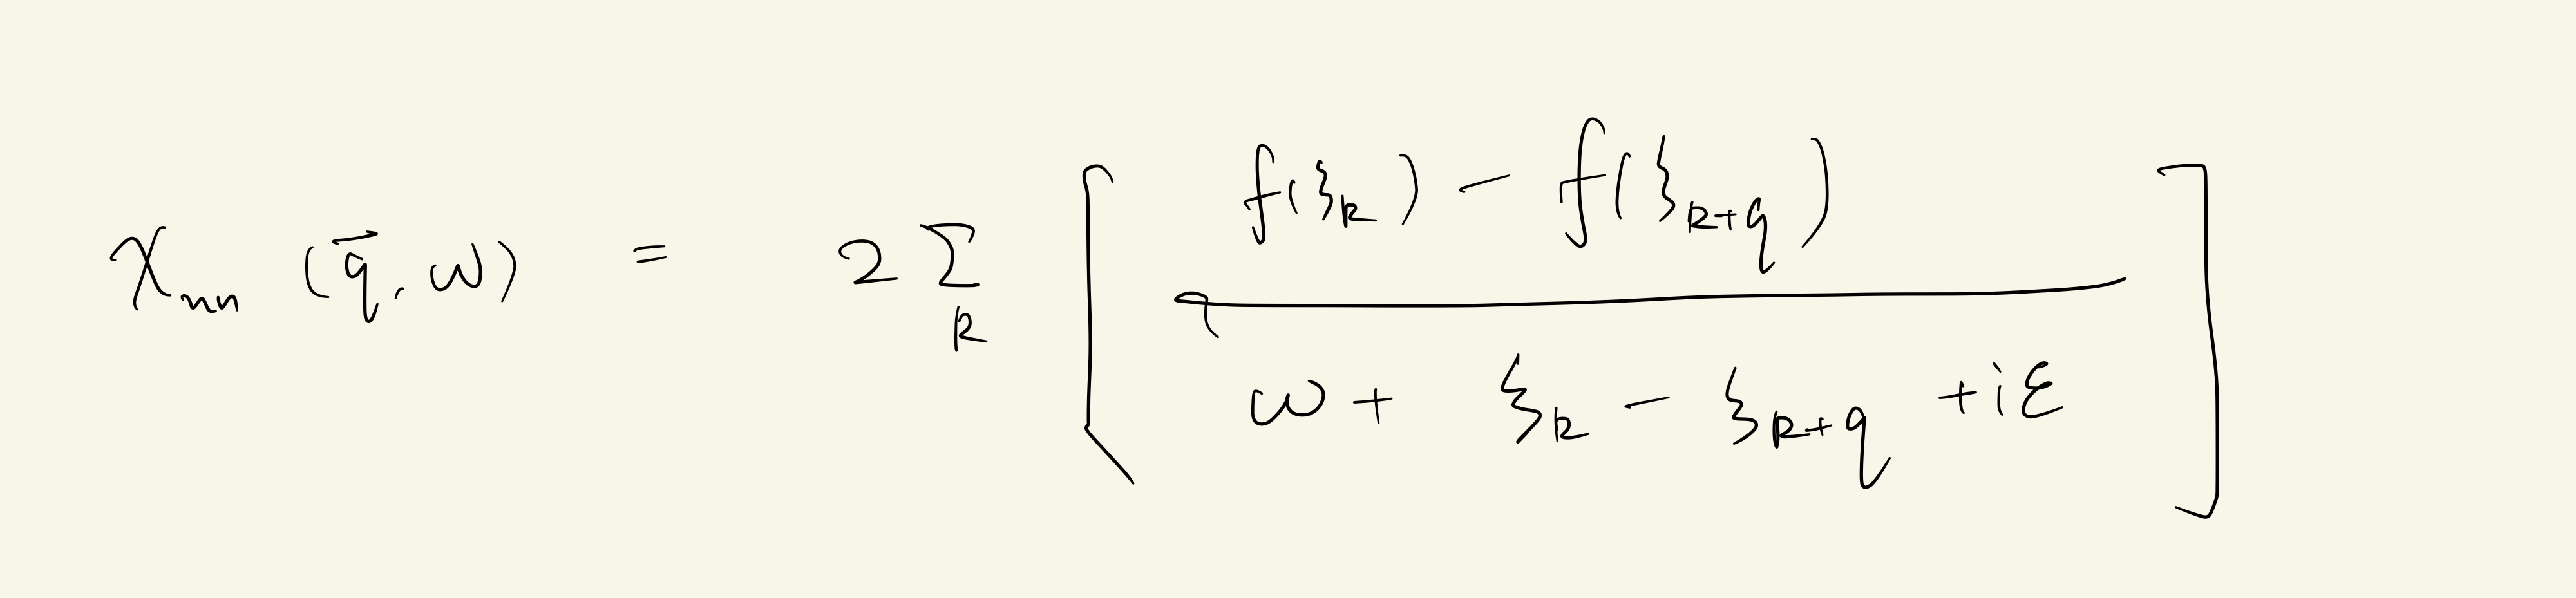 χ_{nn} (\vec{q}, ω) = 2 Σ_k [ \frac{f(ξ_k) - f(ξ_{k+q})}{ω + ξ_k - ξ_{k+q} + iε} ]